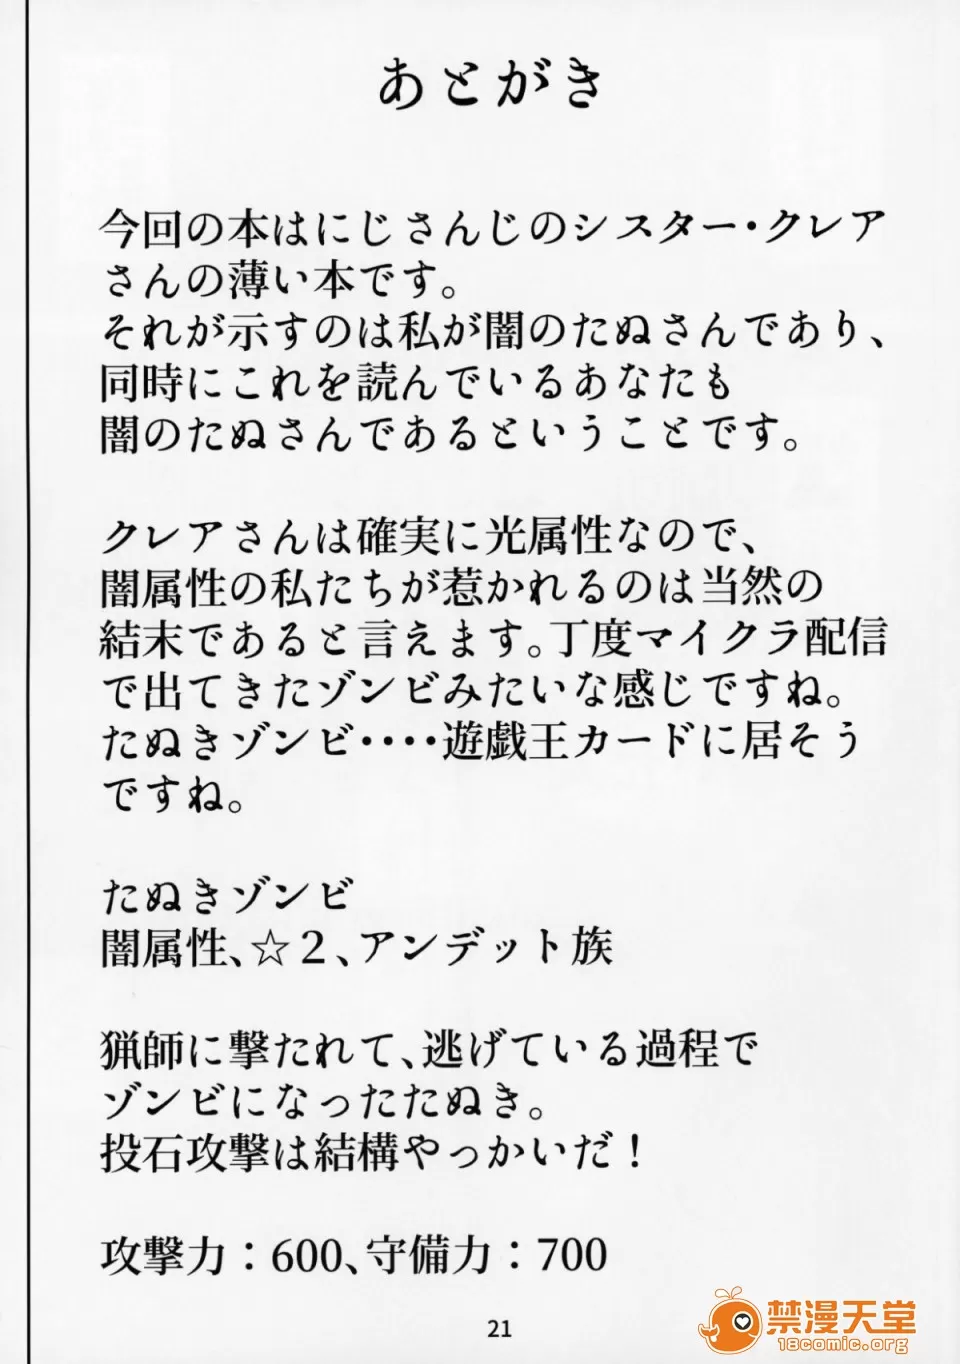 あとがき
今回の本はにじさんじのシスター・クレア
さんの薄い本です。
それが示すのは私が闇のたぬさんであり、
同時にこれを読んでいるあなたも
闇のたぬさんであるということです。
クレアさんは確実に光属性なので、
闇属性の私たちが惹かれるのは当然の
結末であると言えます。丁度マイクラ配信
で出てきたゾンビみたいな感じですね。
たぬきゾンビ・・・・遊戯王カードに居そう
ですね。
たぬきゾンビ
闇属性、☆2、アンデット族
猟師に撃たれて、逃げている過程で
ゾンビになったたぬき。
投石攻撃は結構やっかいだ！
攻撃力：600、守備力：700
21
禁漫天堂
18comic.org